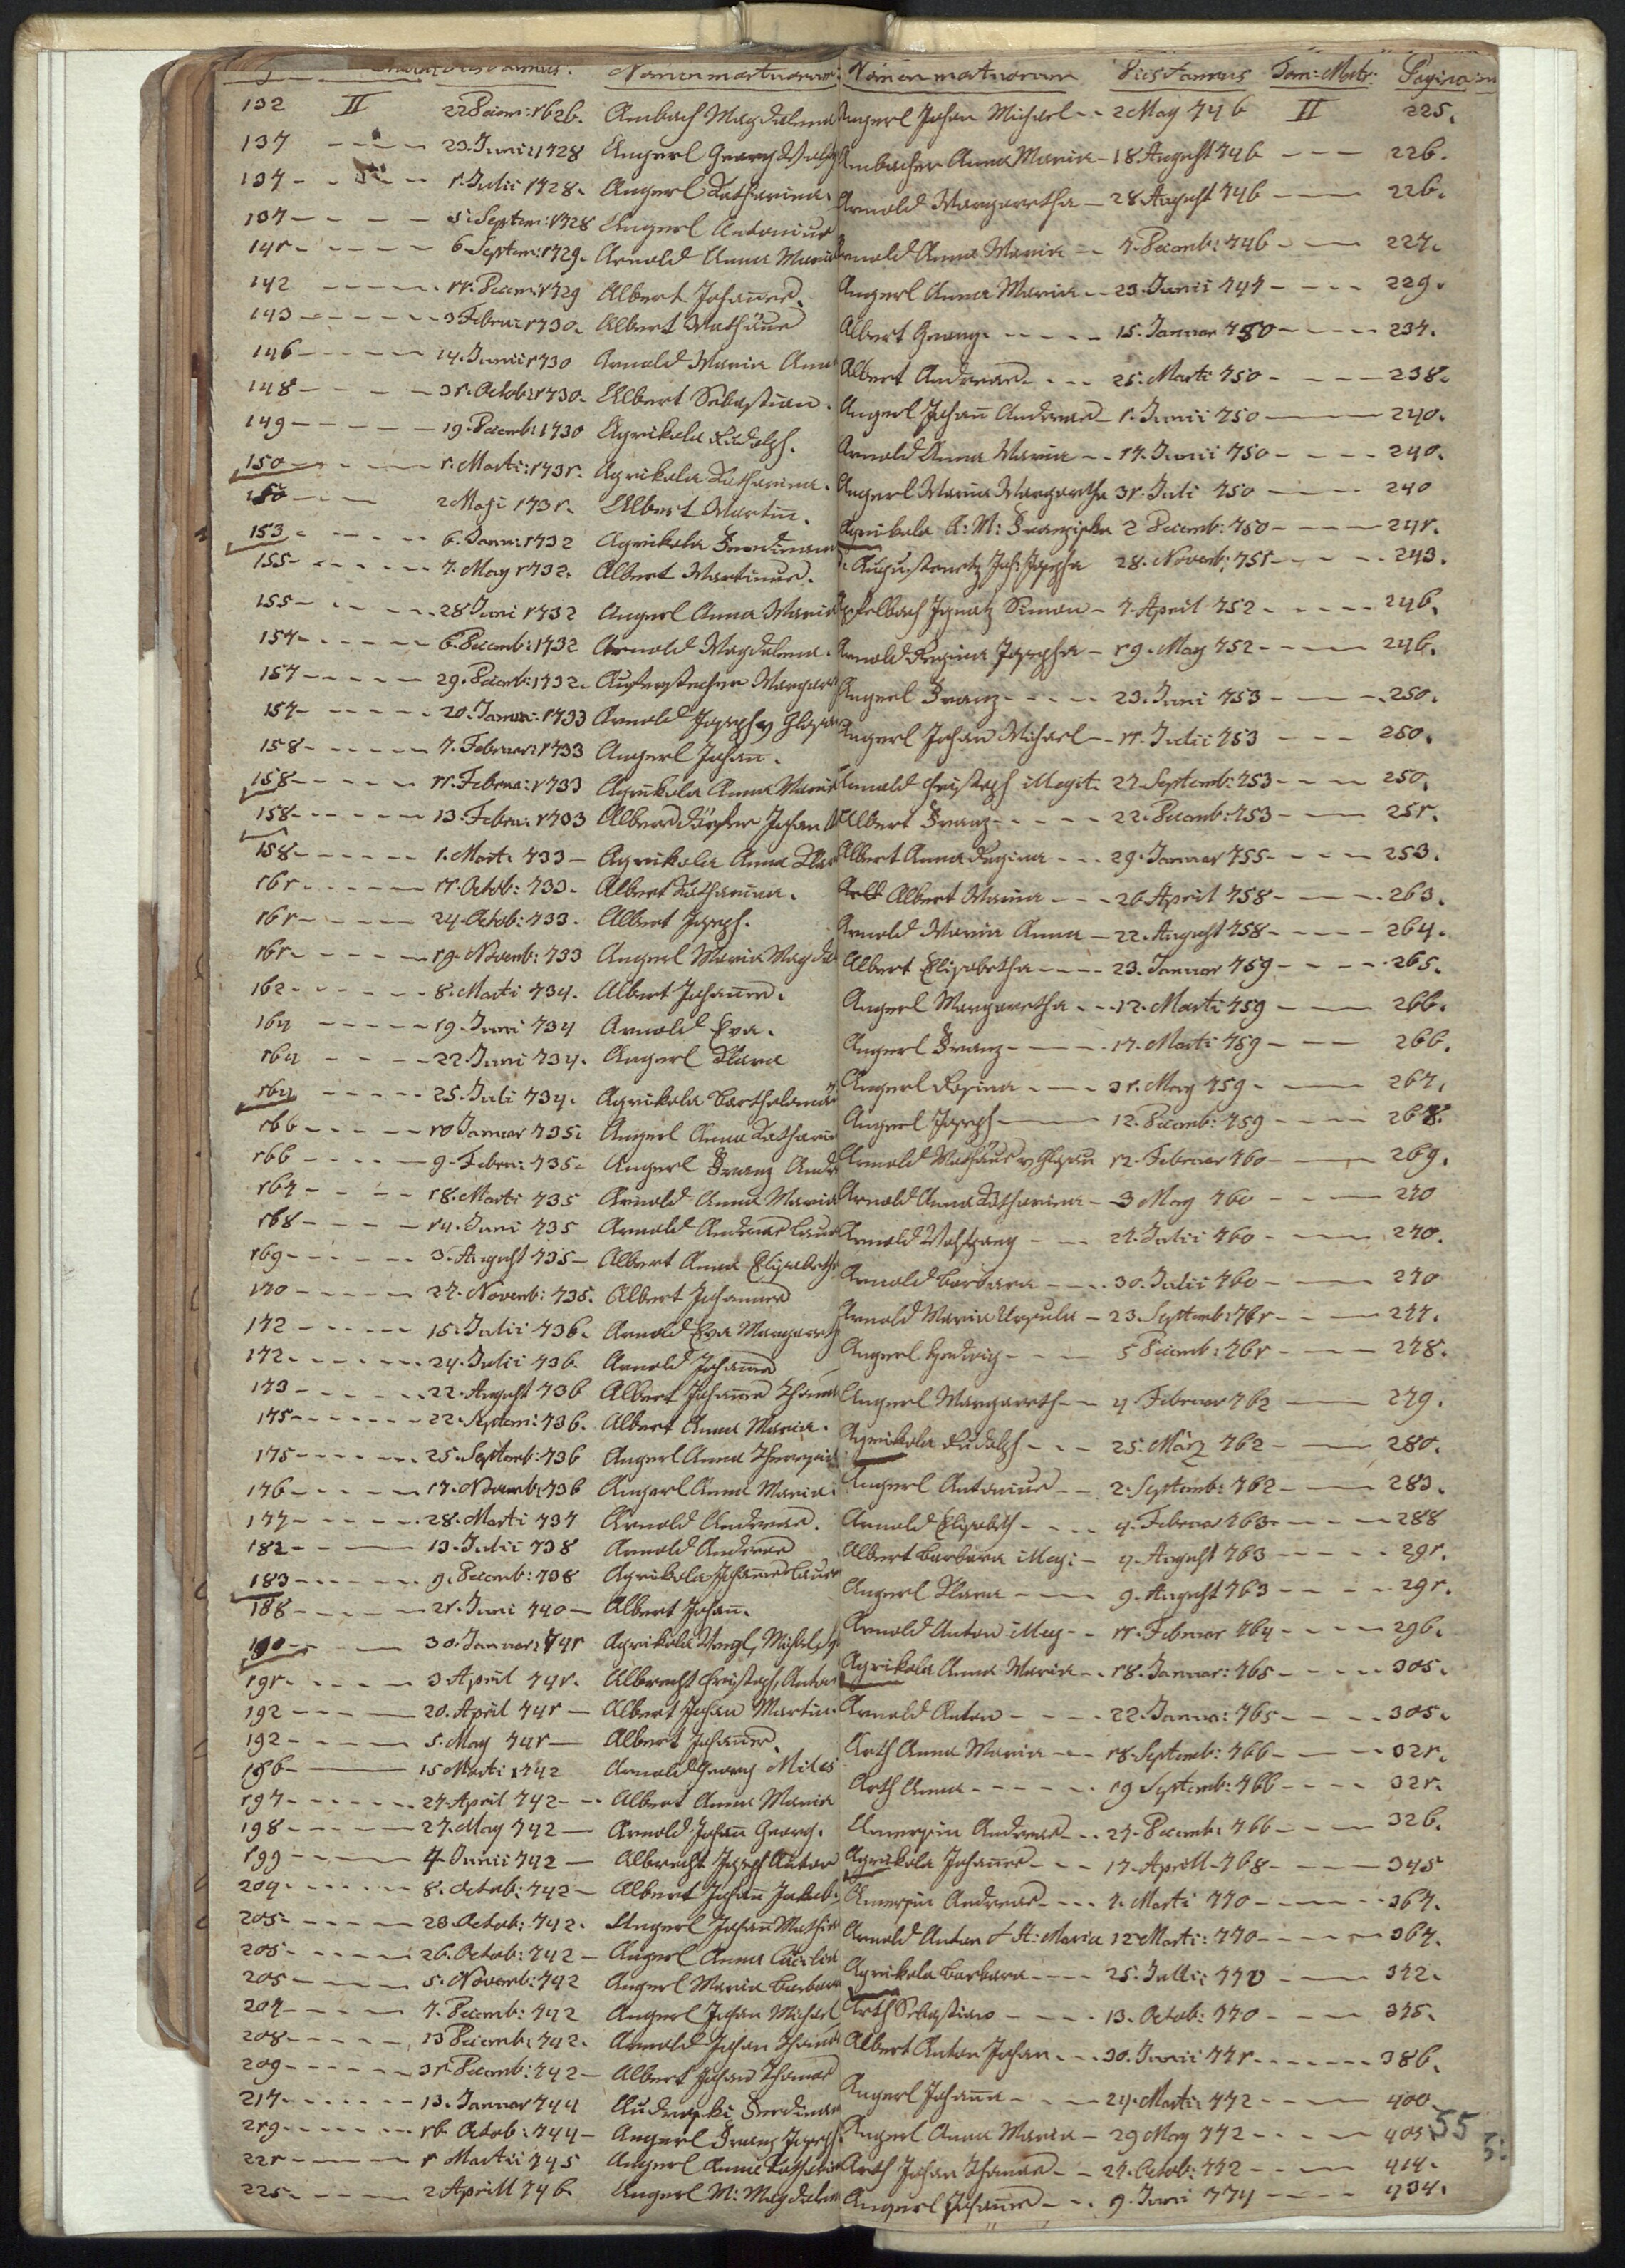 Dies et Annus. Nomen mortuorum:
132 II 22 Decem: 1626. Ambach Magdalena
137 - - - 23. Junii 1728 Angerl Georg
137 - - - 1. Julii 1728. Angerl Katharina.
137 - - - 5. Septem: 1728 Angerl Antonius
141 - - - 6. Septem: 1729. Arnold Anna Maria
142 - - - 11. Decem: 1729 Albert Johannes.
143 - - - 3 Februa: 1730. Albert Mathäus
146 - - - 14. Junii 1730 Arnold Maria Anna
148 - - - 31. Octob: 1730. Albert Sebastian.
149 - - - 19. Decemb: 1730 Agrikola Rudolph.
150 - - - 1. Marti: 1731. Agrikola Katharina.
150 - - - 2 Maji 1731. Albert Martin.
153 - - - 6. Janu: 1732 Agrikola
155 - - - 7. May 1732. Albert Martinus.
155 - - - 28 Juni 1732 Angerl Anna Maria
157 - - - 6. Decemb: 1732 Arnold Magdalena.
157 - - - 29. Decemb: 1732.
157 - - - 20. Januar: 1733 Arnold Joseph
158 - - - 7. Februar: 1733 Angerl Johan.
158 - - - 11. Februa: 1733 Agrikola Anna Maria
158 - - - 13. Februa: 1733 Johan
158 - - - 1. Marti 733 - Agrikola Anna
161 - - - 11. Octob: 733. Albert Katharina.
161 - - - 24. Octob: 733. Albert Joseph.
161 - - - 19. Novemb: 733 Angerl Maria Magda
162 - - - 8. Marti 734. Albert Johannes.
164 - - - 19. Juni 734 Arnold Eva.
164 - - - 22 Juni 734. Angerl Klara
164 - - - 25. Juli 734. Agrikola Bartholomä
166 - - - 10 Januar 735. Angerl Anna Katharina
166 - - - 9. Febru: 735. Angerl Franz Andr
167 - - - 18. Marti 735 Arnold Anna Maria
168 - - - 14. Juni 735 Arnold Andreas
169 - - - 3. August 735 - Albert Anna Elisabeth
170 - - - 27. Novemb: 735. Albert Johannes
172 - - - 15. Julii 736. Arnold Eva Margareth
172 - - - 24. Julii 736. Arnold Johannes
173 - - - 22. August 736 Albert Johannes
175 - - - 22. Septem: 736. Albert Anna Maria.
175 - - - 25. Septemb: 736 Angerl Anna Theresia
176 - - - 17. Novemb: 736 Angerl Anna Maria.
177 - - - 28. Marti 737 Arnold Andreas.
182 - - - 13. Julii 738 Arnold Andreas
183 - - - 9. Decemb: 738 Agrikola Johannes
188 - - - 21. Juni 740 - Albert Johan.
190 - - - 30. Januar: 741 Agrikola Michael
191 - - - 3 April 741. Albrecht Christoph, Anton
192 - - - 20. April 741 - Albert Johan Martin.
192 - - - 5. May 741 - Albert Johannes.
196 - - - 15 Marti 1742 Arnold Georg Miles
197 - - - 27 April 742 - Albert Anna Maria
198 - - - 27. May 742 - Arnold Johan Georg.
199 - - - 4. Junii 742 - Albrecht Joseph Anton
204 - - - 8. Octob: 742 - Albert Johan Jakob.
205 - - - 23. Octob: 742. Angerl Johan Mathias
205 - - - 26. Octob: 742 - Angerl Anna Cäcilia
205 - - - 5. Novemb: 742 Angerl Maria Barbara
207 - - - 7. Decemb: 742 Angerl Johan Michael
208 - - - 13 Decemb: 742. Arnold Johan Thomas
209 - - - 31. Decemb: 742 - Albert Johan Thomas
217 - - - 13. Januar 744 Ferdinan
219 - - - 16 Octob: 744 - Angerl Franz Joseph.
221 - - - 1 Martii 745 Angerl Anna Katharina
225 - - - 2 Aprill 746 Angerl M: Magdalena
Nomen mortuorum Dies et Annus Tom: Matr: Pagina
Angerl Johan Michael - - 2 May 746 II 225.
Ambacher Anna Maria - 18. August 746 - - - 226.
Arnold Margaretha - 28 August 746 - - 226.
Arnold Anna Maria - - 7. Decemb: 746 - - 227.
Angerl Anna Maria - - 23. Junii 747 - - - 229.
Albert Georg. - - - - 15. Januar 750 - - - 237.
Albert Andreas - - - 25. Marti 750 - - - 238.
Angerl Johan Andreas - 1. Junii 750 - - 240.
Arnold Anna Maria - - 17. Junii 750 - - - 240.
Angerl Maria Margaretha 31. Juli 750 - - - 240
Agrikola A: M: Franziska 2 Decemb: 750 - - - 241.
Josepha 28. Novemb: 751 - - - 243.
Apfelbach Ignatz Simon - 7. April 752. - - - 246.
Arnold Regina Josepha - 19. May 752 - - - 246.
Angerl Franz - - - - 23. Juni 753 - - - 250.
Angerl Johan Michael - - 11. Julii 753 - - - 250.
Arnold Christoph 27. Septemb: 753 - - - 250.
Albert Franz - - - - 22. Decemb: 753 - - 251.
Albert Anna Regina - - - 29. Januar 755 - - - 253.
Albert Maria - - - 26 April 758 - - - 263.
Arnold Maria Anna - 22. August 758 - - - 264.
Albert Elisabetha - - - 23. Januar 759 - - - 265.
Angerl Margaretha - - - 12. Marti 759 - - - 266.
Angerl Franz - - - 17. Marti 759 - - - 266.
Angerl Rosina - - - 31. May 759 - - - 267.
Angerl Joseph - - 12. Decemb: 759 - - - 268.
Arnold Mathäus 12. Februar 760 - - - 269.
Arnold Anna Katharina - 3 May 760 - - - 270
Arnold Wolfgang - - - 27. Julii 760 - - - 270.
Arnold Barbara - - - 30. Julii 760 - - - 270
Arnold Maria Ursula - 23. Septemb: 761 - - - 277.
Angerl Hedwig - - - 5 Decemb: 761 - - - 278.
Angerl Margareth - - 4. Februar 762 - - 279.
Agrikola Rudolph - - - 25. März 762 - - - 280.
Angerl Antonius - - 2. Septemb: 762 - - - 283.
Arnold Elisabeth - - - 4. Februar 763 - - - 288
Albert Barbara - 4. August 763 - - - 291.
Angerl Klara - - - 9. August 763 - - - 291.
Arnold Anton - - 11. Februar 764 - - - 296.
Agrikola Anna Maria - - 18. Januar: 765 - - - 305.
Arnold Anton - - - 22. Janua: 765 - - - 305.
Arth Anna Maria - - 18. Septemb: 766 - - - 321.
Arth Anna - - - - 19 Septemb: 766 - - - 321.
Andreas - - 27. Decemb: 766 - - - 326.
Agrikola Johannes - - - 17. Aprill 768 - - - 345
Andreas - - - 7. Marti 770 - - - 367.
Arnold Anton 12 Marti: 770 - - - 367.
Agrikola Barbara - - - 25. Julli: 770 - - - 372.
Arth Sebastian - - - 13. Octob: 770 - - - 375.
Albert Anton Johan - - - 30. Junii 771. - - - 386.
Angerl Johanna - - - 24. Marti: 772 - - - 400.
Angerl Anna Maria - 29 May 772 - - - 55
Arth Johan Thomas - - 27. Octob: 772 - - - 414.
Angerl Johannes - - - 9. Juni 774 - - - 434.